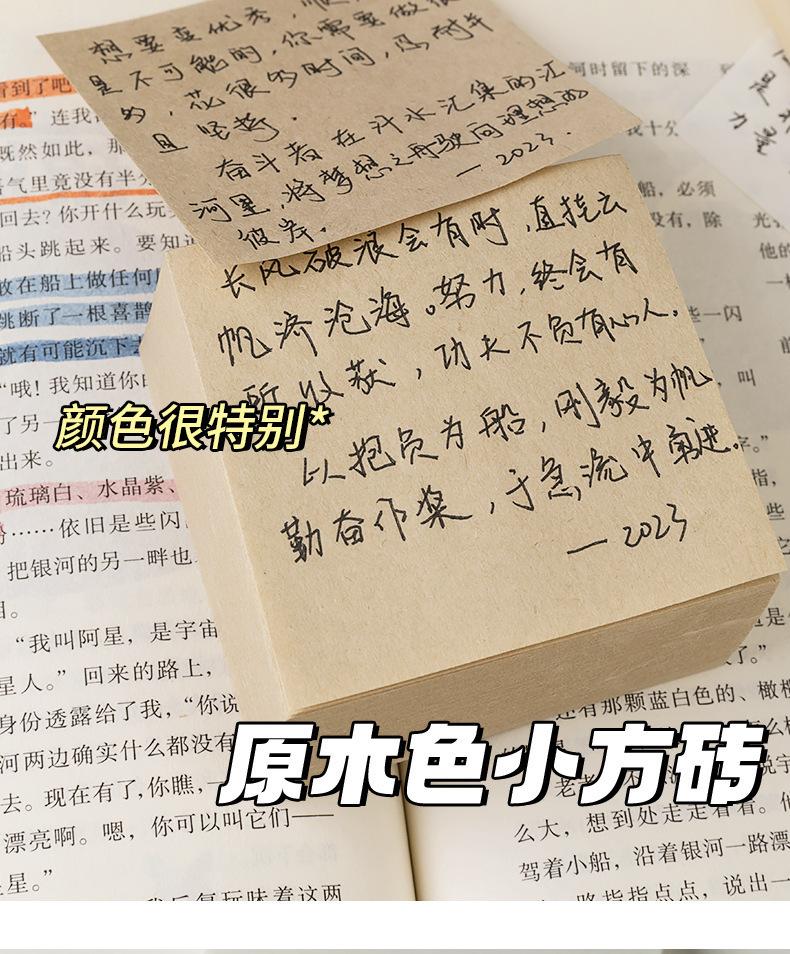 想要变优秀，
是不可能的，你需要做很
多，花很多时间，多耐并
且坚持．
奋斗者在汗水汇集的江
河里，将梦想之舟驶向理想的
彼岸．
— 2023.
长风破浪会有时，直挂云
帆济沧海。努力，终会有
所收获，功夫不负有心人．
以抱负为船，刚毅为帆
勤奋作桨，于急流中奋进。
— 2023
颜色很特别*
原木色小方砖
看到了吧
有。”连我
既然如此，那
语气里竟没有半
回去？你开什么玩
船头跳起来。要知
放在船上做任何
跳断了一根喜鹊
就有可能沉下去
“哦！我知道你
了另一
出来。
琉璃白、水晶紫、
……依旧是些闪
把银河的另一畔也
“我叫阿星，是宇宙
星人。”回来的路上，
身份透露给了我，“你说
河两边确实什么都没有
去。现在有了，你瞧，一
漂亮啊。嗯，你可以叫它们——
星。”
反复玩味着这两
何时留下的深
我十分
船，必须
没有，除
些一闪
叫
还有那颗蓝白色的、橄榄
么大，想到处走走看看。他
驾着小船，沿着银河一路漂
指指点点，说出一
力量